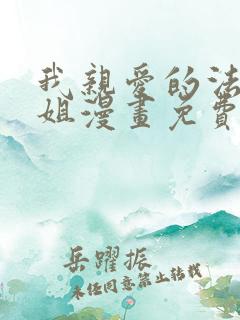 我親愛的法
姐漫畫免費
岳躍振
未任同意禁止轉載